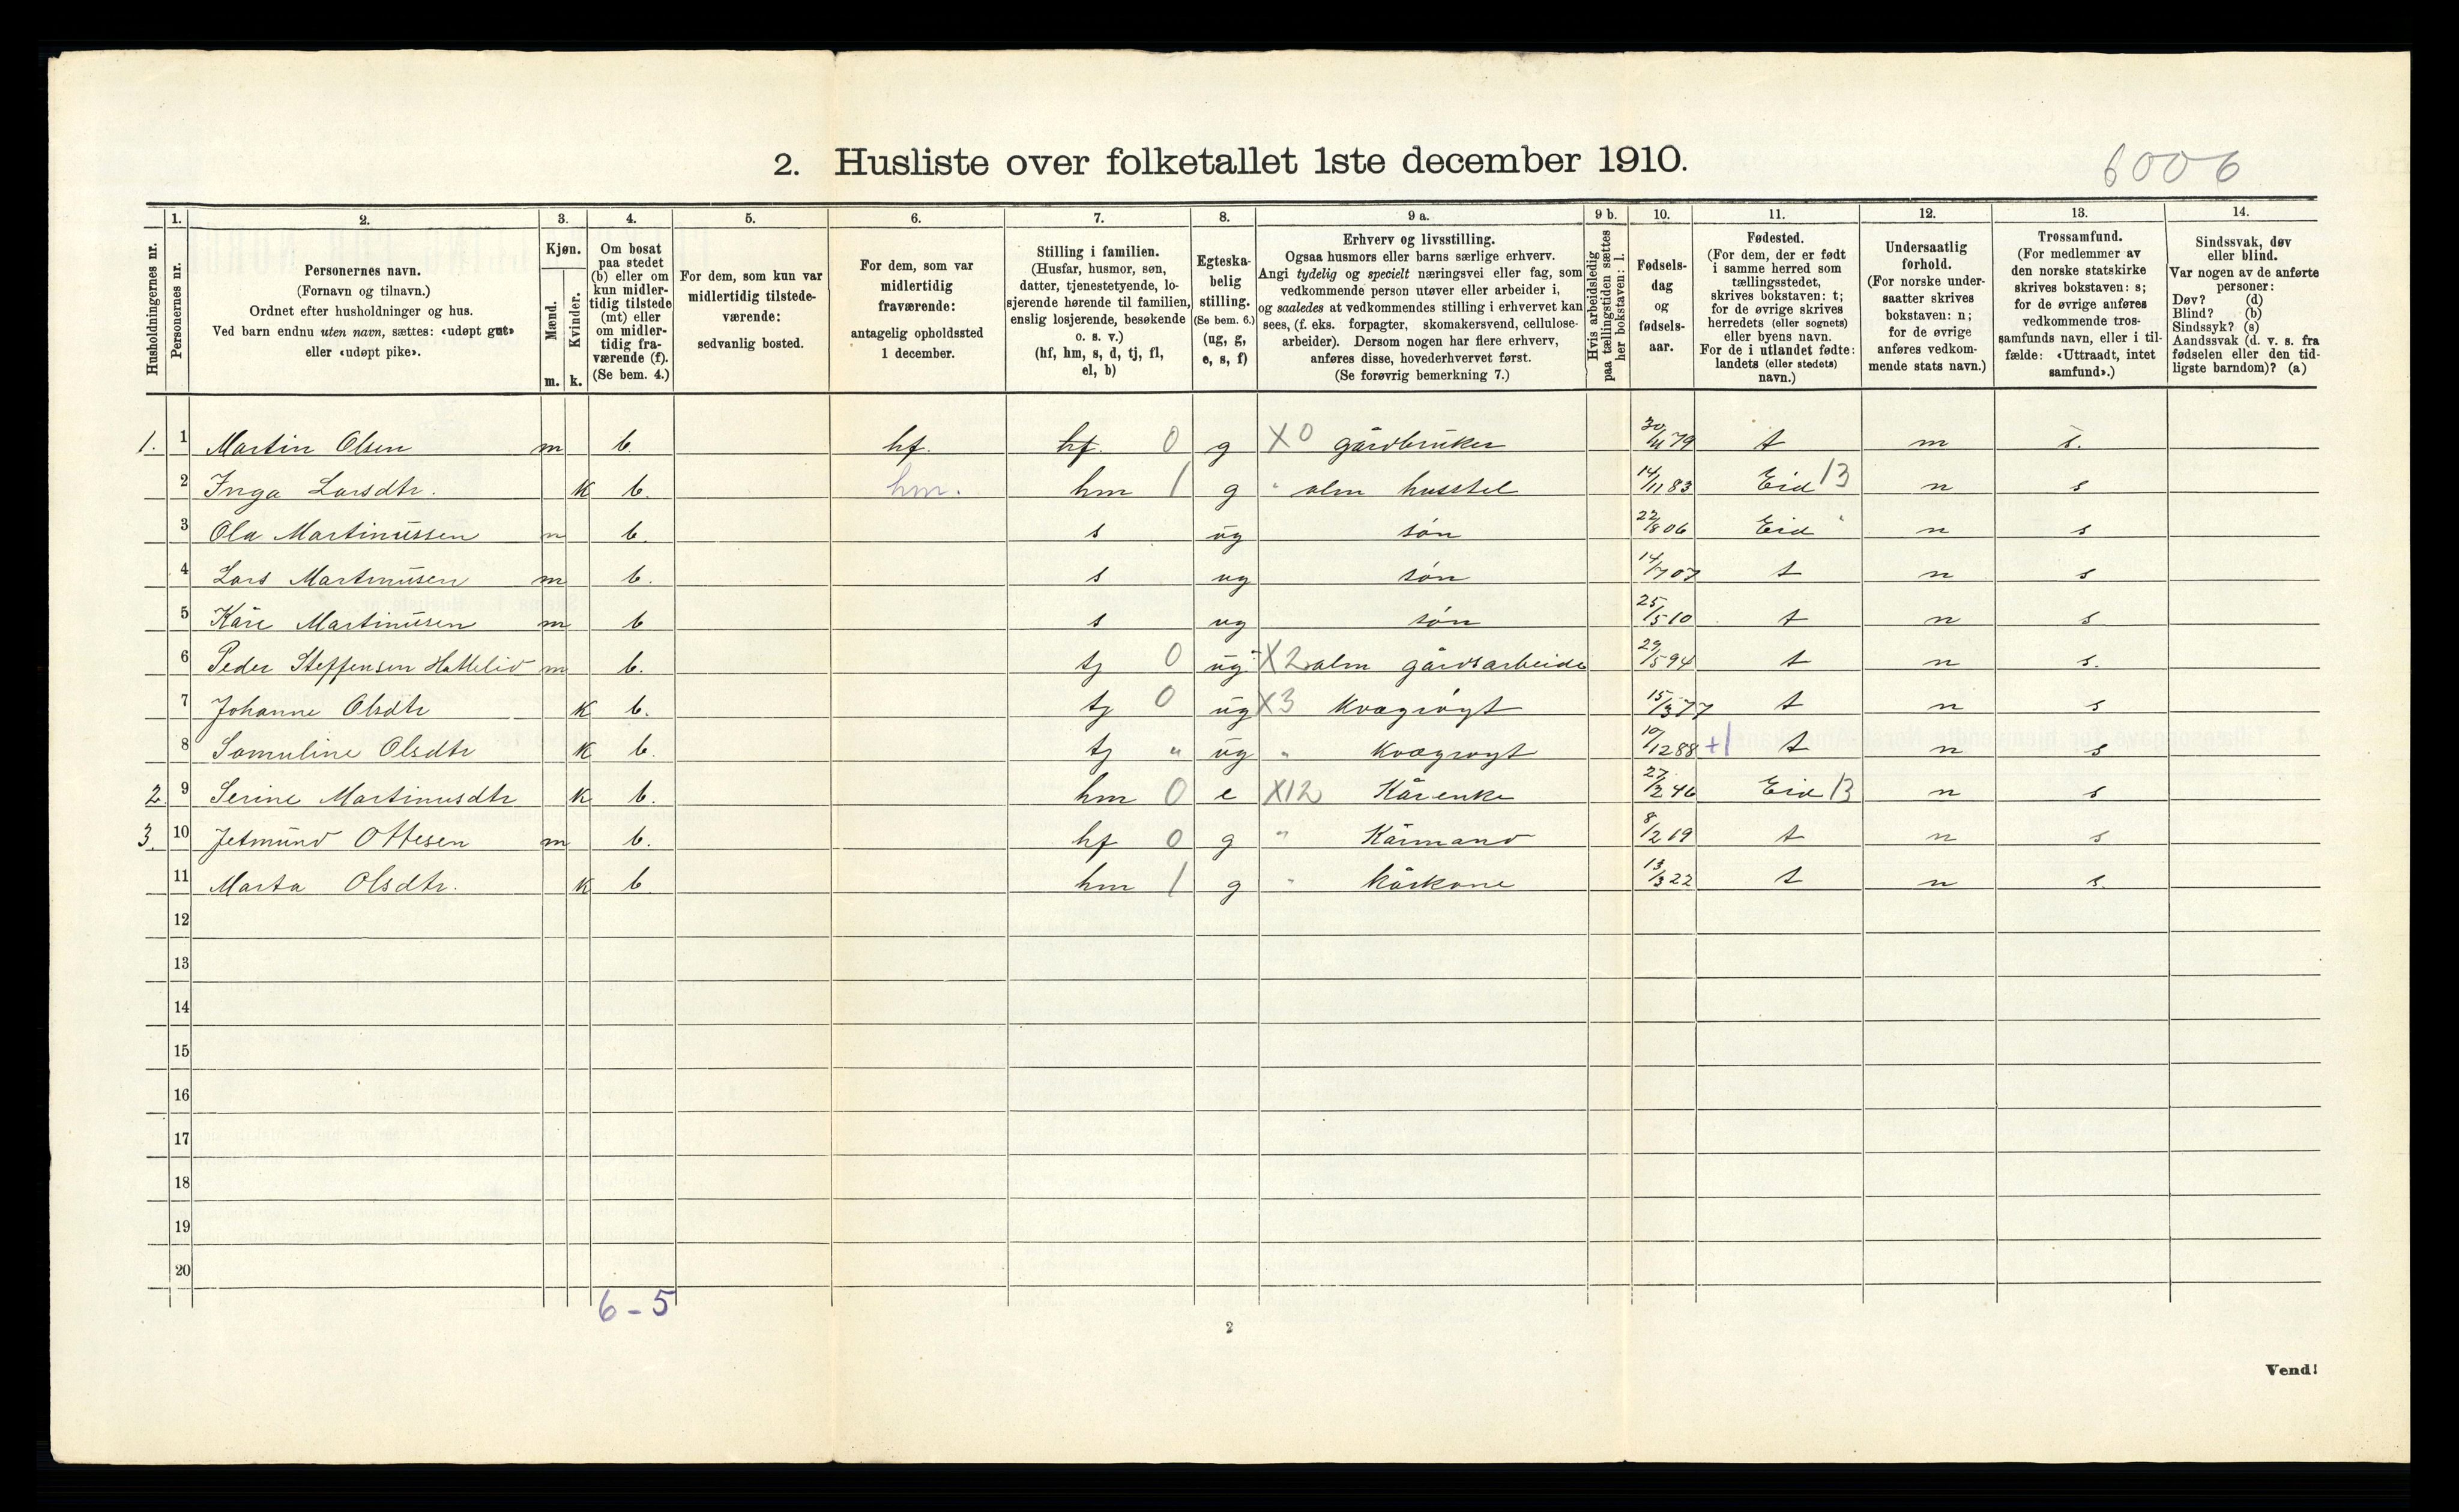 2. Husliste over folketallet 1ste december 1910.
6006
Husholdningernes nr.
1. Personernes nr.
2. Personernes navn.
(Fornavn og tilnavn.)
Ordnet efter husholdninger og hus.
Ved barn endnu uten navn, sættes: «udøpt gut»
eller «udøpt pike».
3. Kjøn.
Mænd. m.
Kvinder. k.
4. Om bosat
paa stedet
(b) eller om
kun midler-
tidig tilstede
(mt) eller
om midler-
tidig fra-
værende (f).
(Se bem. 4.)
5. For dem, som kun var
midlertidig tilstede-
værende:
sedvanlig bosted.
6. For dem, som var
midlertidig
fraværende:
antagelig opholdssted
1 december.
7. Stilling i familien.
(Husfar, husmor, søn,
datter, tjenestetyende, lo-
sjerende hørende til familien,
enslig losjerende, besøkende
o. s. v.)
(hf, hm, s, d, tj, fl,
el, b)
8. Egteska-
belig
stilling.
(Se bem. 6.)
(ug, g,
e, s, f)
9 a. Erhverv og livsstilling.
Ogsaa husmors eller barns særlige erhverv.
Angi tydelig og specielt næringsvei eller fag, som
vedkommende person utøver eller arbeider i,
og saaledes at vedkommendes stilling i erhvervet kan
sees, (f. eks. forpagter, skomakersvend, cellulose-
arbeider). Dersom nogen har flere erhverv,
anføres disse, hovederhvervet først.
(Se forøvrig bemerkning 7.)
9 b. Hvis arbeidsledig
paa tællingstiden sættes
her bokstaven: l.
10. Fødsels-
dag
og
fødsels-
aar.
11. Fødested.
(For dem, der er født
i samme herred som
tællingsstedet,
skrives bokstaven: t;
for de øvrige skrives
herredets (eller sognets)
eller byens navn.
For de i utlandet fødte:
landets (eller stedets)
navn.)
12. Undersaatlig
forhold.
(For norske under-
saatter skrives
bokstaven: n;
for de øvrige
anføres vedkom-
mende stats navn.)
13. Trossamfund.
(For medlemmer av
den norske statskirke
skrives bokstaven: s;
for de øvrige anføres
vedkommende tros-
samfunds navn, eller i til-
fælde: «Uttraadt, intet
samfund».)
14. Sindssvak, døv
eller blind.
Var nogen av de anførte
personer:
Døv? (d)
Blind? (b)
Sindssyk? (s)
Aandssvak (d. v. s. fra
fødselen eller den tid-
ligste barndom)? (a)
1. 1 Martin Olsen m b. hf. hf. 0 g X0 gårdbruker 30/4 79 t m s.
2 Inga Larsdtr. K b. hm. hm 1 g " alm husstel 14/11 83 Eid 13 n s
3 Ola Martinussen m b. s ug søn 22/8 06 Eid " n s
4 Lars Martinusen m b. s ug søn 14/7 07 t n s
5 Kåre Martinusen m b s ug søn 25/5 10 t n s
6 Peder Steffensen Hattelid m b. tj 0 ug X2 alm gårdsarbeide 29/5 94 t n s.
7 Johanne Olsdtr K b. tj 0 ug X3 Kvægrøgt 15/3 77 t n s
8 Samuline Olsdtr K b. tj " ug " Kvægrøgt 10/12 88 +1 t n s
2. 9 Serine Martinusdtr K b. hm 0 e X12 Kårenke 27/2 46 Eid 13 n s
3. 10 Jetmund Ottesen m b. hf 0 g " Kårmand 8/2 19 t n s
11 Marta Olsdtr. K b hm 1 g " kårkone 13/3 22 t n s.
12
13
14
15
16
17
18
19
20
6 - 5
2
Vend!